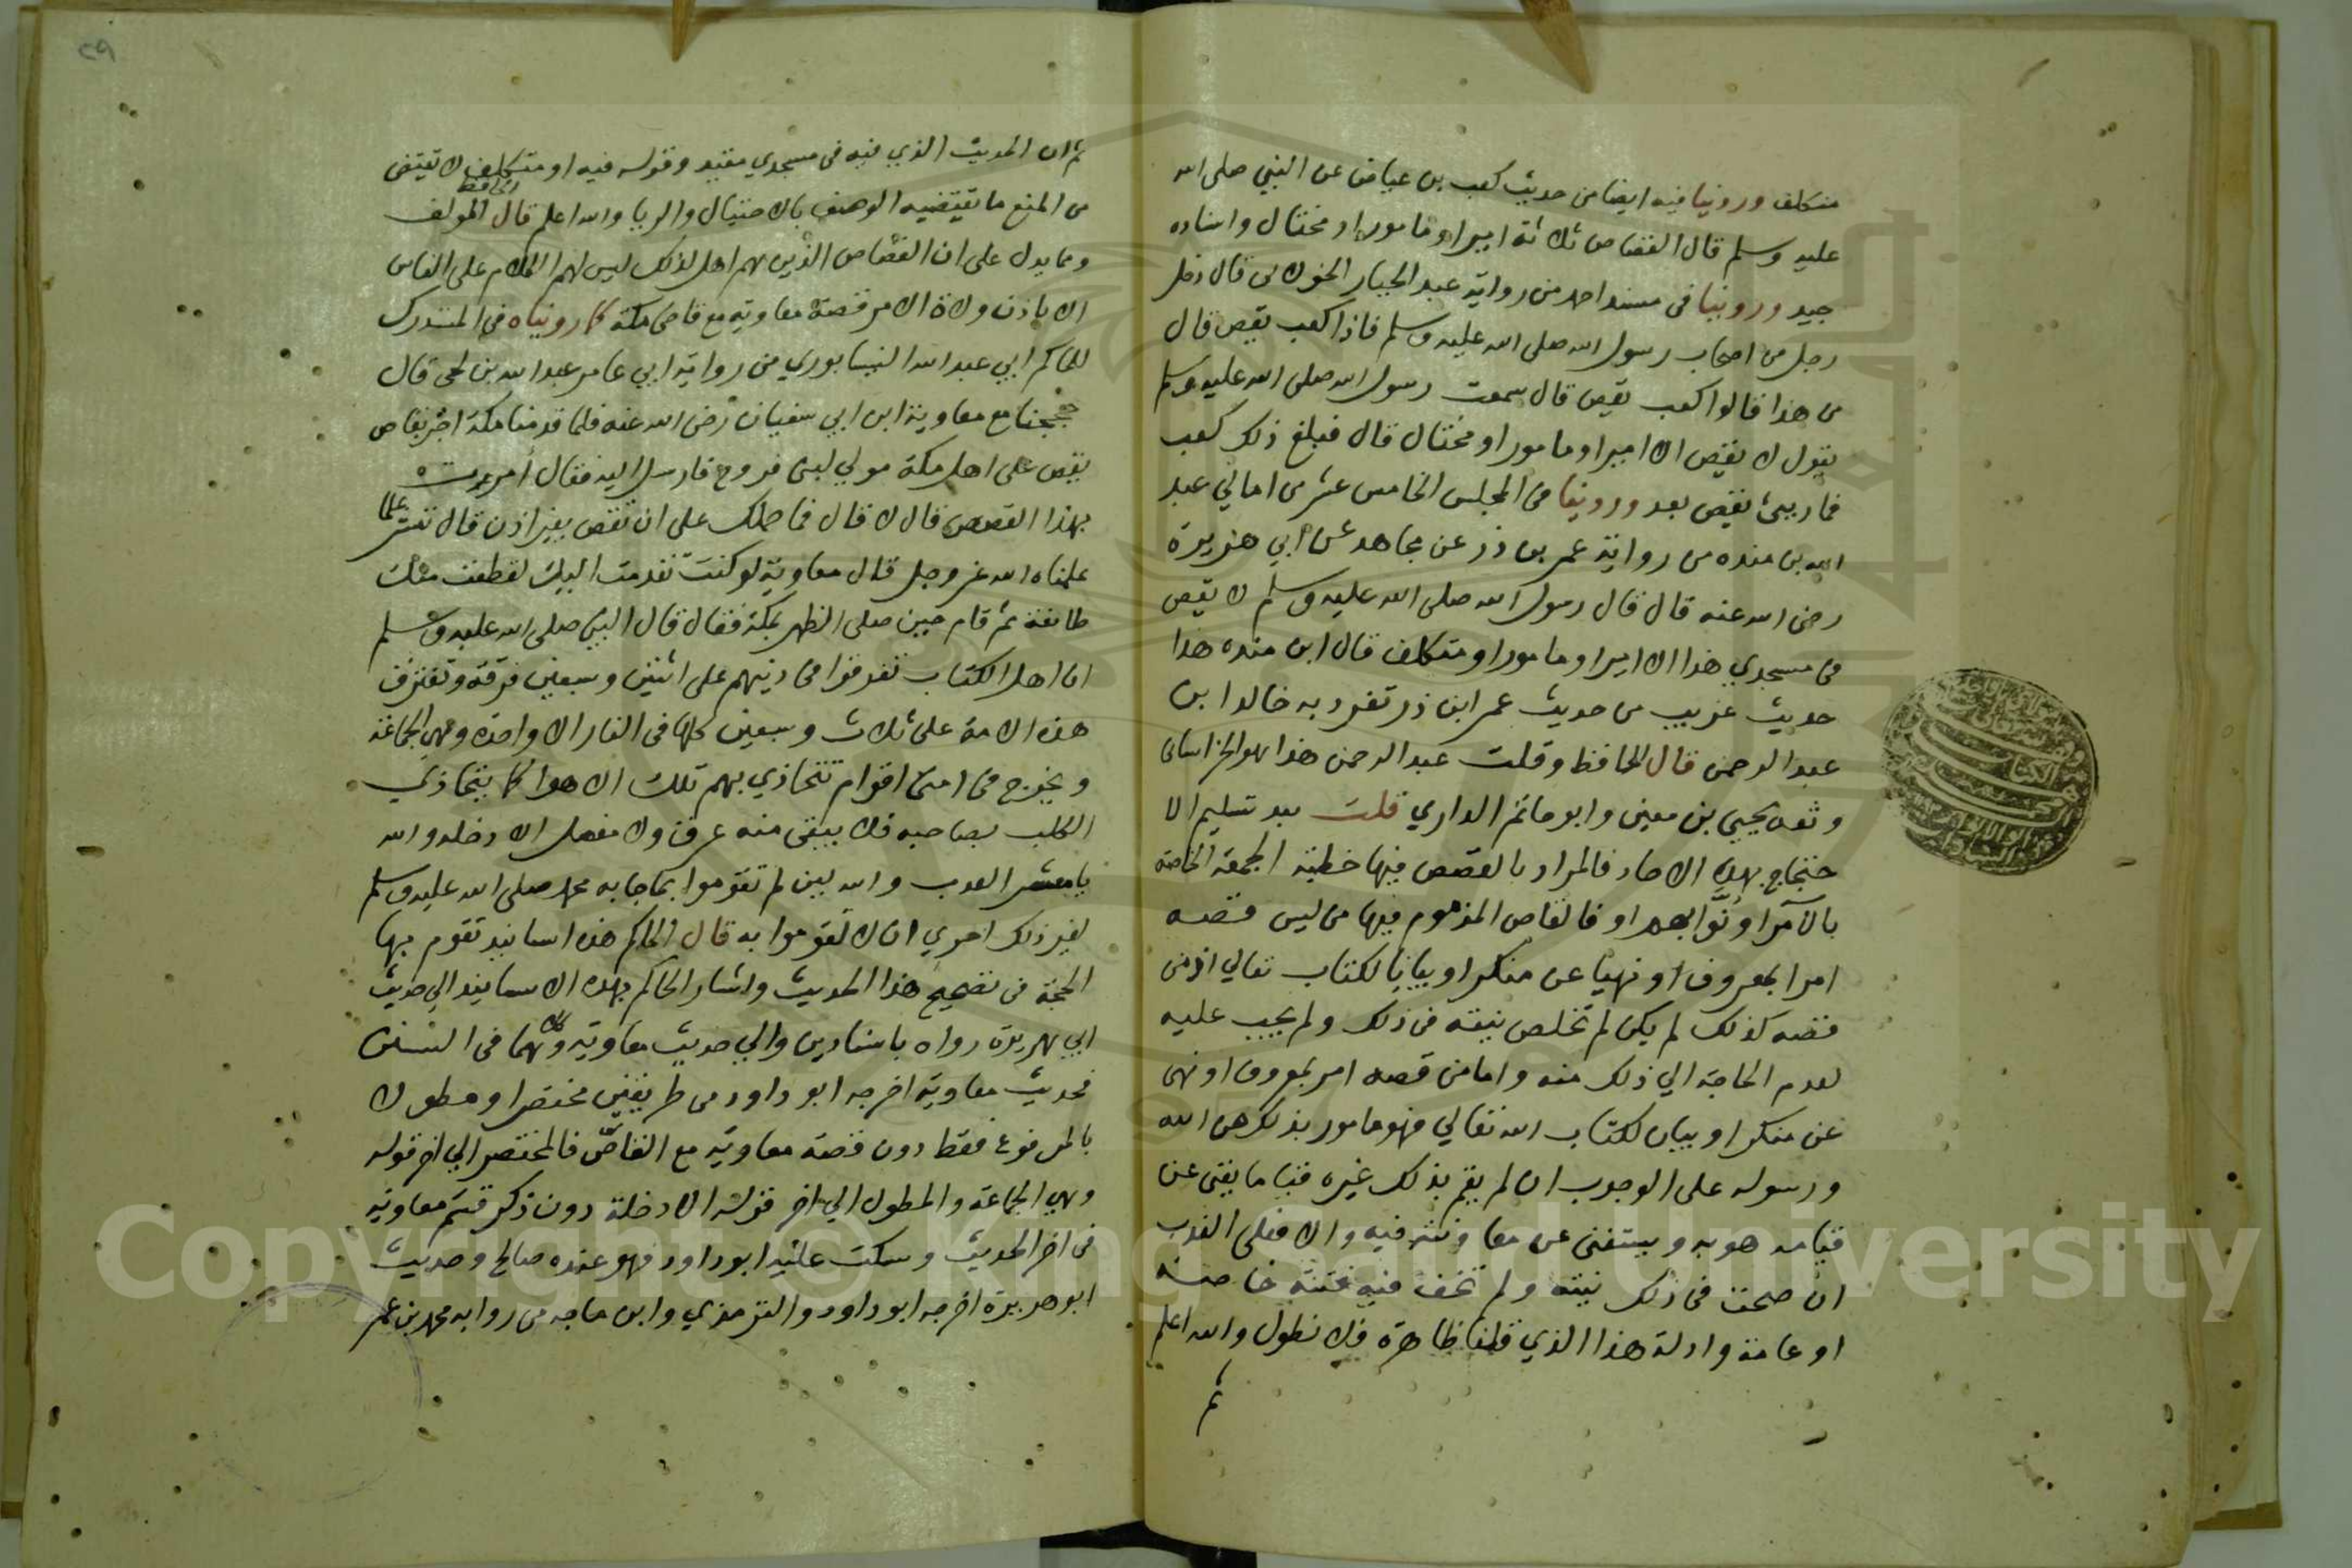 متكلف وروينا فيه ايضا من حديث كعب بن عياض عن النبي صلى الله
عليه وسلم قال القصاص ثلاثة امير او مامور او مختال واسناده
جيد وروينا فى مسند احمد من رواية عبد الجبار الخولانى قال دخل
رجل من اصحاب رسول الله صلى الله عليه وسلم فاذا كعب يقص قال
من هذا قالوا كعب يقص قال سمعت رسول الله صلى الله عليه وسلم
يقول لا يقص الا امير او مامور او مختال قال فبلغ ذلك كعب
فما ريئ يقص بعد وروينا فى المجلس الخامس عشر من امالي عبد
الله بن منده من رواية عمر بن ذر عن مجاهد عن ابي هريرة
رضى الله عنه قال قال رسول الله صلى الله عليه وسلم لا يقص
فى مسجدي هذا الا امير او مامور او متكلف قال ابن منده هذا
حديث غريب من حديث عمر ابن ذر تفرد به خالد ابن
عبد الرحمن قال الحافظ وقلت عبد الرحمن هذا هو الخراسانى
وثقه يحيى بن معين وابو حاتم الداري قلت بعد تسليم الا
حتجاج بهذه الاحاد فالمراد بالقصص فيها خطبة الجمعة الخاصة
بالآمرا او نوابهم او فالقاص المذموم فيها من ليس قصه
امرا بمعروف او نهيا عن منكر او بيانا لكتاب تعالي اذ من
قصه كذلك لم يكن لم تخلص نيته فى ذلك ولم يجب عليه
لعدم الحاجة الي ذلك منه واما من قصه امر بمعروف او نهى
عن منكر او بيان لكتاب الله تعالي فهو مامور بذلك من الله
ورسوله على الوجوب ان لم يقم بذلك غيره قياما يغنى عن
قيامه هو به ويستغنى عن معاونته فيه والا فعلى الندب
ان صحت فى ذلك نيته ولم تخف فيه فتنة خاصة
او عامة وادلة هذا الذي قلنا ظاهرة فلا نطول والله اعلم
ثم
٢٩
ثم ان الحديث الذي فيه فى مسجدي مقيد وقوله فيه او متكلف لا يقتضى
من المنع ما يقتضيه الوصف بالاختيال والريا والله اعلم قال الحافظ المولف
ومما يدل على ان القصاص الذين هم اهل لذلك ليس لهم الكلام على الناس
الا باذن ولاة الامر قصة معاوية مع قاص مكة كما رويناه فى المستدرك
للحاكم ابي عبد الله النيسابوري من رواية ابي عامر عبد الله بن لحى قال
حججنا مع معاوية ابن ابي سفيان رضى الله عنه فلما قدمنا مكة اخبر بقاص
يقص على اهل مكة مولي لبنى فروخ فارسل اليه فقال أمرت
بهذا القصص قال لا قال فما حملك على ان تقص بغير اذن قال ننشر علما
علمناه الله عز وجل قال معاوية لو كنت تقدمت اليك لقطعت منك
طائفة ثم قام حين صلى الظهر بمكة فقال قال النبى صلى الله عليه وسلم
ان اهل الكتاب تفرقوا فى دينهم على اثنين وسبعين فرقة وتفترق
هذه الامة على ثلاث وسبعين كلها فى النار الا واحدة وهي الجماعة
ويخرج فى امتى اقوام تتجاذي بهم تلك الاهوا كما يتجاذي
الكلب بصاحبه فلا يبقى منه عرق ولا مفصل الا دخله والله
يا معشر العرب والله لين لم تقوموا بما جا به محمد صلى الله عليه وسلم
لغير ذلك احري ان لا تقوموا به قال الحاكم هذه اسانيد تقوم بها
الحجة فى تصحيح هذا الحديث واشار الحاكم بهذه الاسانيد الي حديث
ابي هريرة رواه باسنادين والي حديث معاوية وكلاهما فى السنن
فحديث معاوية اخرجه ابو داود من طريقين مختصرا ومطولا
بالمرفوع فقط دون قصة معاوية مع القاص فالمختصر الي اخر قوله
وهي الجماعة والمطول الي اخر قوله الا دخله دون ذكر قسم معاوية
فى اخر الحديث وسكت عليه ابو داود فهو عنده صالح وحديث
ابو هريرة اخرجه ابو داود والترمذي وابن ماجه من رواية محمد بن عمر
Copyright © King Saud University